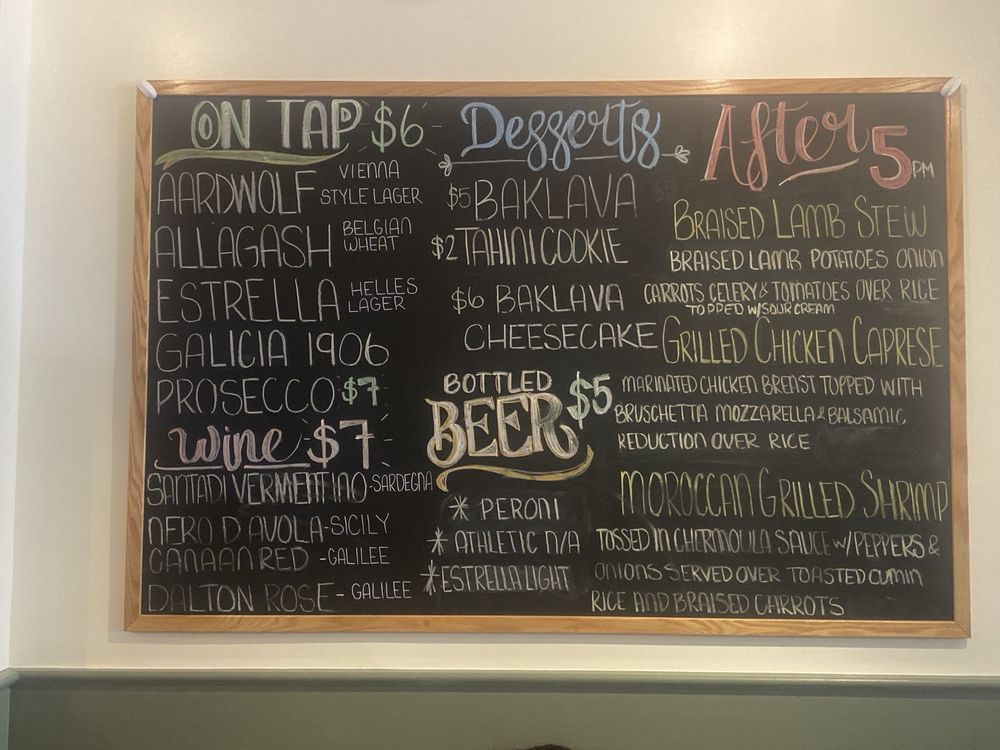 ON TAP $6
AARDWOLF VIENNA STYLE LAGER
ALLAGASH BELGIAN WHEAT
ESTRELLA HELLES LAGER
GALICIA 1906
PROSECCO $7
Wine $7
SANTADI VERMENTINO - SARDEGNA
NERO D AVOLA - SICILY
CANAAN RED - GALILEE
DALTON ROSE - GALILEE
Desserts
$5 BAKLAVA
$2 TAHINI COOKIE
$6 BAKLAVA
CHEESECAKE
BOTTLED
BEER $5
* PERONI
* ATHLETIC N/A
* ESTRELLA LIGHT
After 5 PM
BRAISED LAMB STEW
BRAISED LAMB POTATOES ONION
CARROTS CELERY & TOMATOES OVER RICE
TOPPED W/SOUR CREAM
GRILLED CHICKEN CAPRESE
MARINATED CHICKEN BREAST TOPPED WITH
BRUSCHETTA MOZZARELLA & BALSAMIC
REDUCTION OVER RICE
MOROCCAN GRILLED SHRIMP
TOSSED IN CHERMOULA SAUCE W/ PEPPERS &
ONIONS SERVED OVER TOASTED CUMIN
RICE AND BRAISED CARROTS